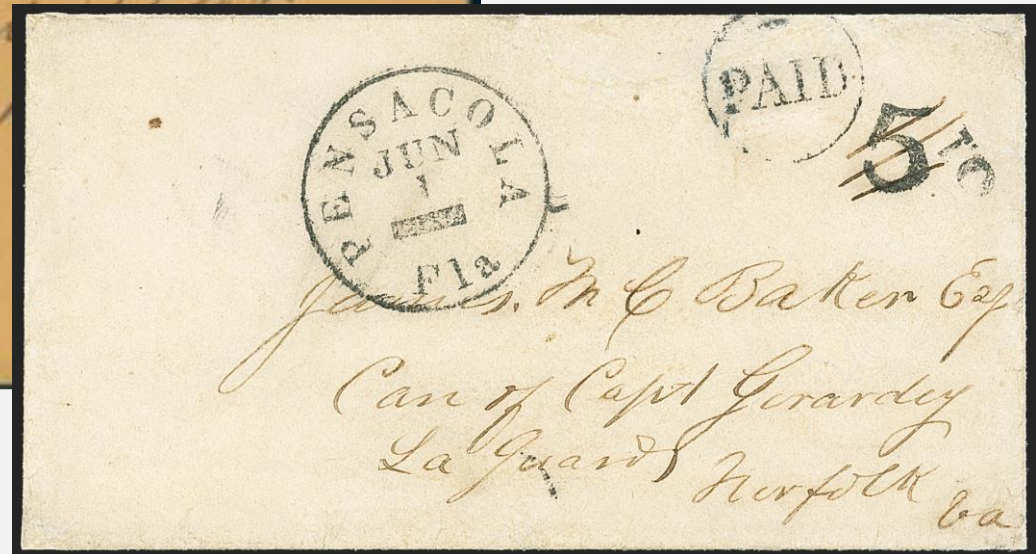 PENSACOLA
JUN
1
Fla
PAID
5 10
James. M C Baker Esq
Care of Capt Girardey
La Guards Norfolk
Va